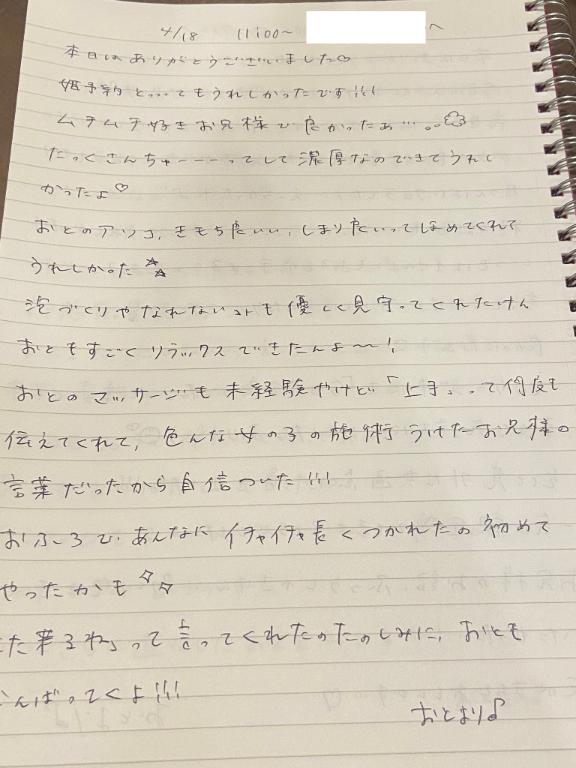 4/18 11:00~ へ
本日はありがとうございました♡
姫予約 と...てもうれしかったです!!!
ムチムチ好きお兄様で良かったぁ…
たっくさんちゅーーーってして濃厚なのできてうれし
かったよ♡
おとのアソコ、きもちたいい、しまりたいってほめてくれて
うれしかった☆☆
泡づくりやなれないコトも優しく見守ってくれたけん
おともすごくリラックスできたんよ〜!
おとのマッサージも未経験やけど「上手」って何度も
伝えてくれて、色んな女の子の施術うけたお兄様の
言葉だったから自信ついた!!!
おふろで、あんなにイチャイチャ長くつかれたの初めて
やったかも
た来るね」って言ってくれたのたのしみに、おとも
んばってくよ!!!
おとより♪